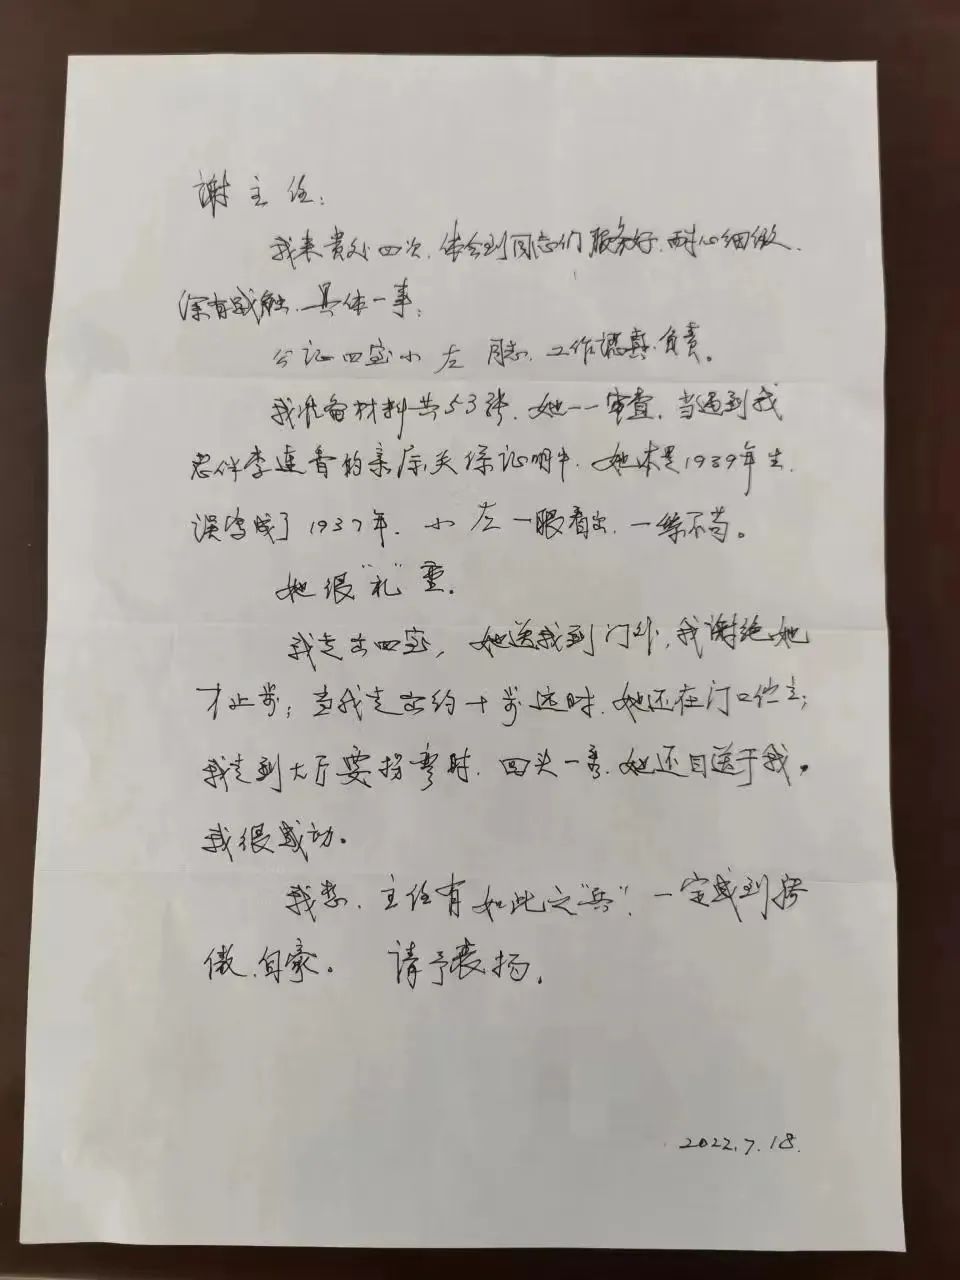 谢主任:
我来贵处四次,体会到同志们服务好,耐心细微,
深有感触,具体一事:
公证四室小左同志,工作认真,负责。
我准备材料共53张,她一一审查,当遇到我
老伴李连香的亲属关系证明中,她本是1939年生,
误写成了1937年,小左一眼看出,一丝不苟。
她很“礼”重.
我走出四室,她送我到门外,我谢绝她
才止步;当我走出约十步远时,她还在门口伫立;
我走到大厅要拐弯时,回头一看,她还目送于我,
我很感动。
我想,主任有如此之“兵”,一定感到骄
傲,自豪。 请予表扬.
2022.7.18.